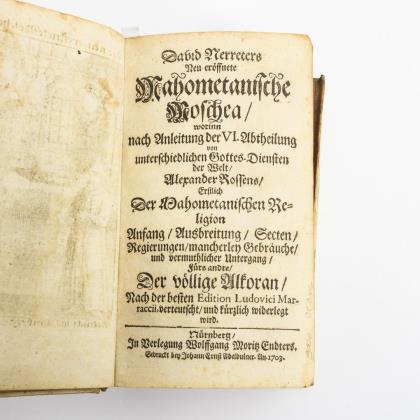 David Nerreters
Neu eröffnete
Mahometanische
Moschea/
worinn
nach Anleitung der VI. Abtheilung
von
unterschiedlichen Gottes-Diensten
der Welt/
Alexander Rossens/
Erstlich
Der Mahometanischen Re-
ligion
Anfang/ Außbreitung/ Secten/
Regierungen/ mancherley Gebräuche/
und vermuthlicher Untergang/
Fürs andre/
Der völlige Alkoran/
Nach der besten Edition Ludovici Mar-
raccii verteutscht/ und kürzlich widerlegt
wird.
Nürnberg/
In Verlegung Wolffgang Moritz Endters.
Gedruckt bey Johann Ernst Adelbulner. An. 1703.